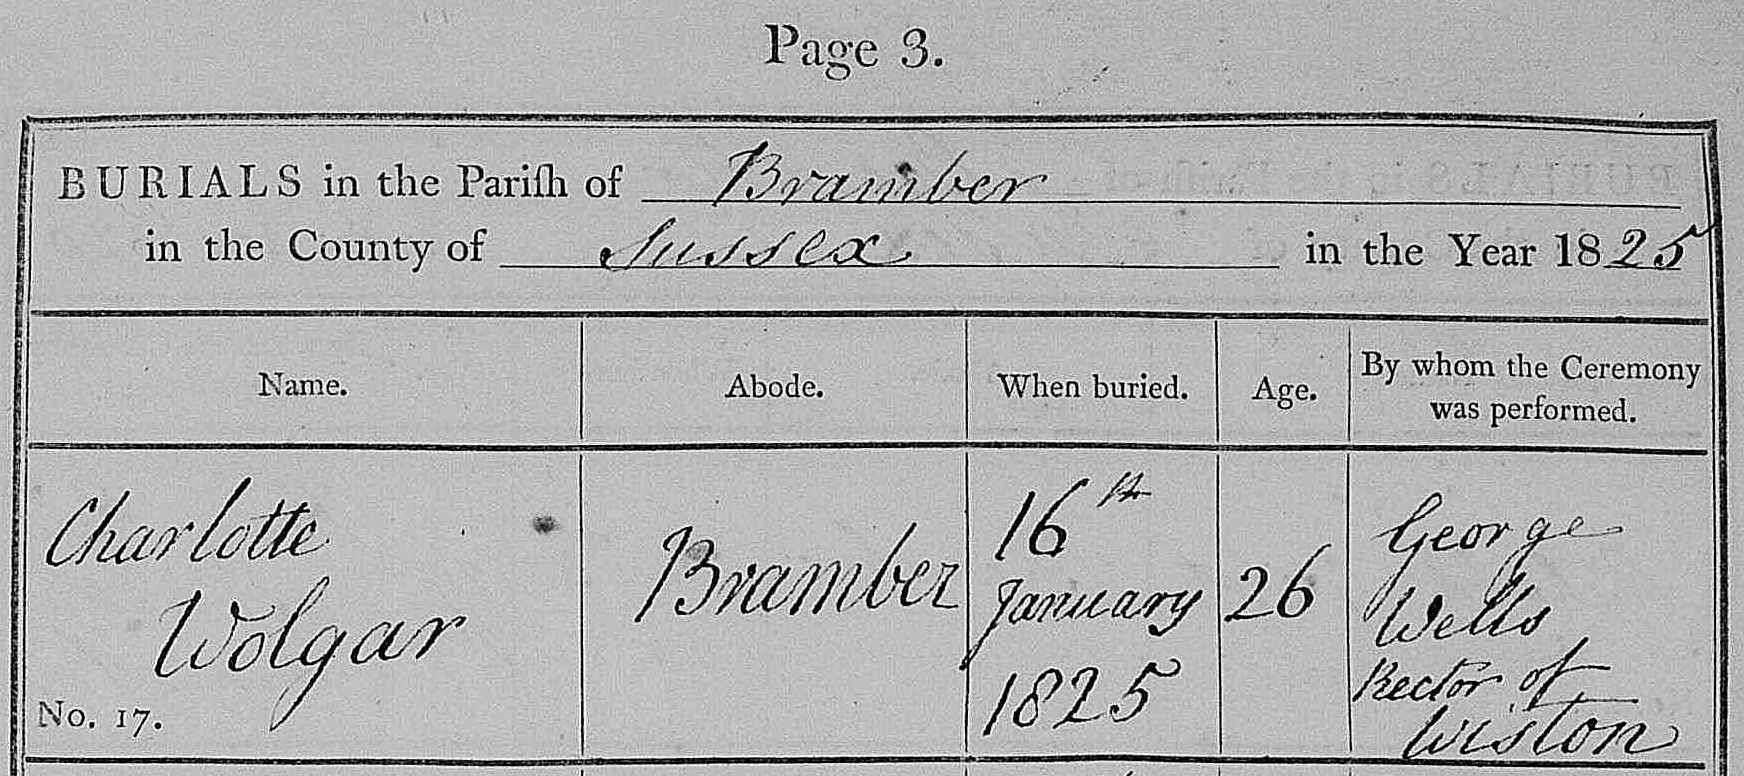 Page 3.
BURIALS in the Pariſh of Bramber
in the County of Sussex in the Year 1825
Name. Abode. When buried. Age. By whom the Ceremony was performed.
Charlotte
Wolgar
No. 17.
Bramber
16th
January
1825
26
George
Wells
Rector of
Wiston